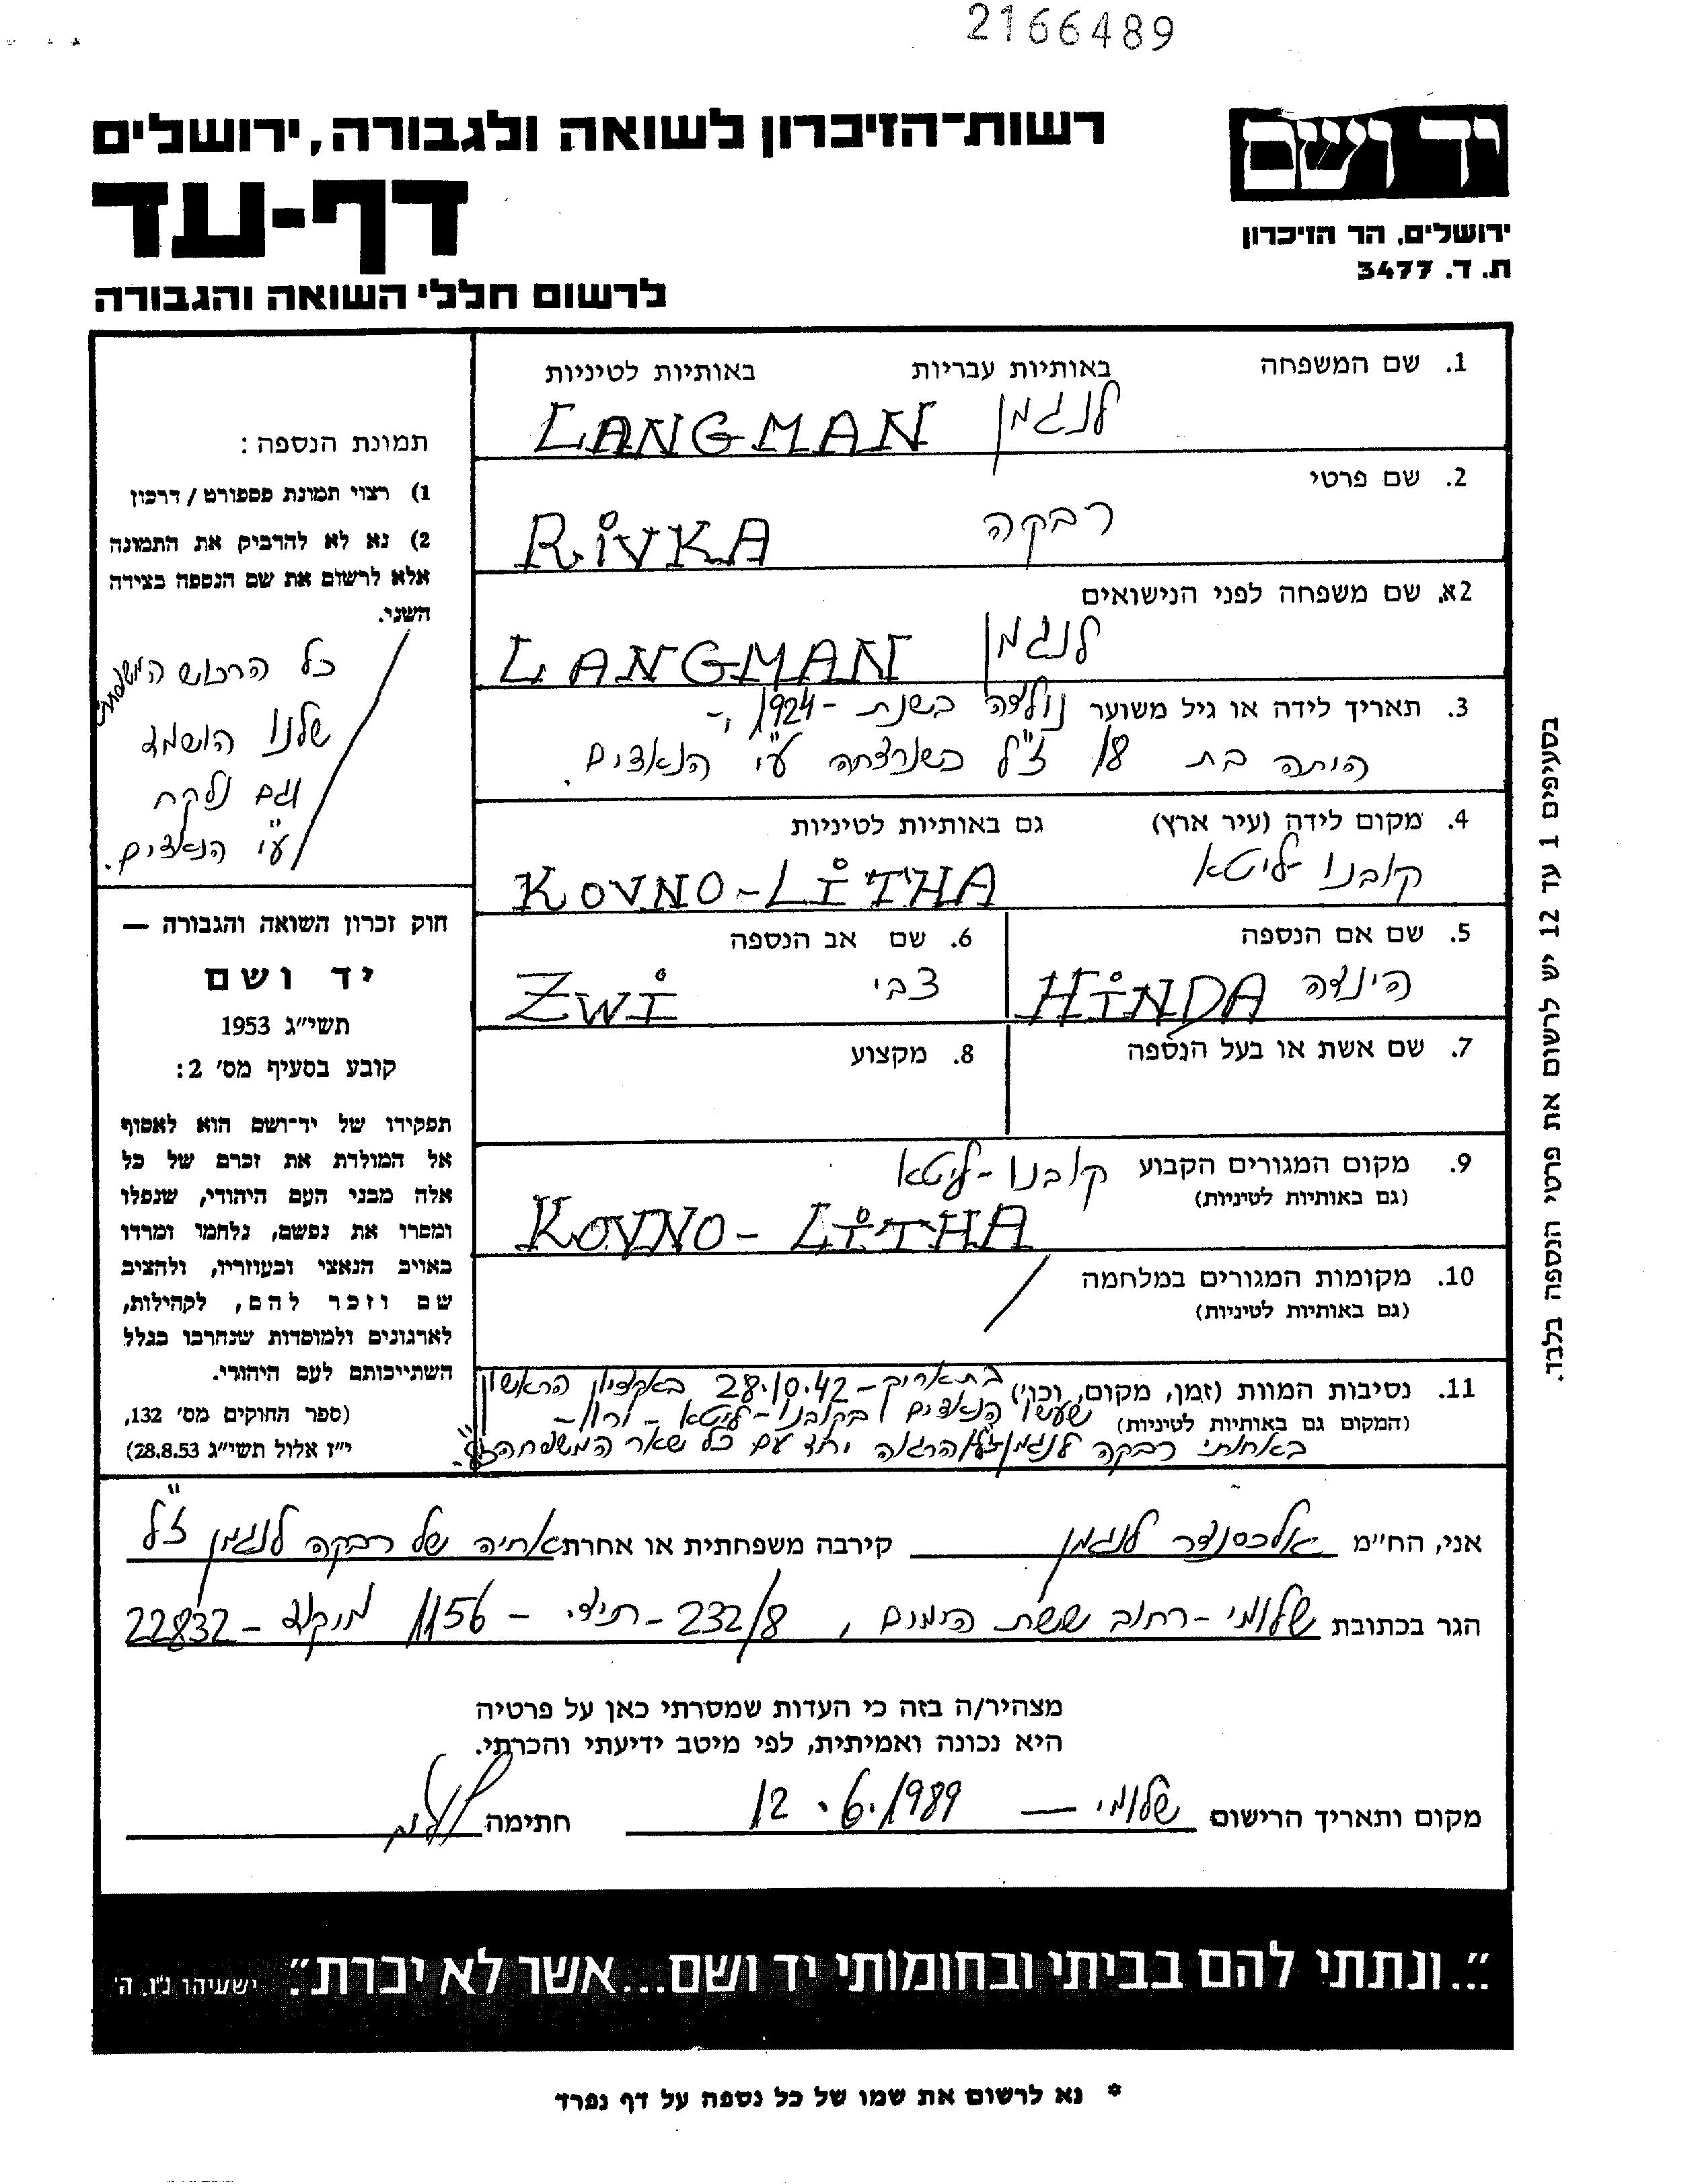 2166489
רשות־הזיכרון לשואה ולגבורה, ירושלים
דף-עד
לרשום חללי השואה והגבורה
יד ושם
ירושלים, הר הזיכרון
ת. ד. 3477
1. שם המשפחה באותיות עבריות באותיות לטיניות
לנגמן LANGMAN
2. שם פרטי
רבקה RiVKA
2א. שם משפחה לפני הנישואים
לנגמן LANGMAN
3. תאריך לידה או גיל משוער נולדה בשנת - 1924,-
היתה בת 18 ז"ל כשנרצחה ע"י הנאצים.
4. מקום לידה (עיר ארץ) גם באותיות לטיניות
קובנו - ליטא KOVNO - LiTHA
5. שם אם הנספה 6. שם אב הנספה
הינדה HiNDA צבי ZWi
7. שם אשת או בעל הנספה 8. מקצוע
9. מקום המגורים הקבוע קובנו - ליטא
(גם באותיות לטיניות)
KOVNO - LiTHA
10. מקומות המגורים במלחמה
(גם באותיות לטיניות)
11. נסיבות המוות (זמן, מקום, וכו') בתאריך - 28.10.42 באקציון הראשון
(המקום גם באותיות לטיניות) שעשו הנאצים בקובנו - ליטא -
באחותי רבקה לנגמן ז"ל הרגה יחד עם כל שאר המשפחה ז"ל.
תמונת הנספה:
1) רצוי תמונת פספורט / דרכון
2) נא לא להדביק את התמונה
אלא לרשום את שם הנספה בצידה
השני.
כל הרכוש המשפחתי
שלנו הושמד
וגם נלקח
ע"י הנאצים.
חוק זכרון השואה והגבורה —
יד ושם
תשי"ג 1953
קובע בסעיף מס' 2:
תפקידו של יד־ושם הוא לאסוף
אל המולדת את זכרם של כל
אלה מבני העם היהודי, שנפלו
ומסרו את נפשם, נלחמו ומרדו
באויב הנאצי ובעוזריו, ולהציב
שם וזכר להם, לקהילות,
לארגונים ולמוסדות שנחרבו בגלל
השתייכותם לעם היהודי.
(ספר החוקים מס' 132,
י"ז אלול תשי"ג 28.8.53)
בסעיפים 1 עד 12 יש לרשום את פרטי הנספה בלבד.
אני, הח"מ אלכסנדר לנגמן קירבה משפחתית או אחרת אחיה של רבקה לנגמן ז"ל
הגר בכתובת שלומי - רחוב ששת הימים, 232/8 - ת.ד. - 1156 מיקוד - 22832
מצהיר/ה בזה כי העדות שמסרתי כאן על פרטיה
היא נכונה ואמיתית, לפי מיטב ידיעתי והכרתי.
מקום ותאריך הרישום שלומי — 12.6.1989 חתימה
"...ונתתי להם בביתי ובחומותי יד ושם...אשר לא יכרת". ישעיהו נ"ו, ה'
* נא לרשום את שמו של כל נספה על דף נפרד